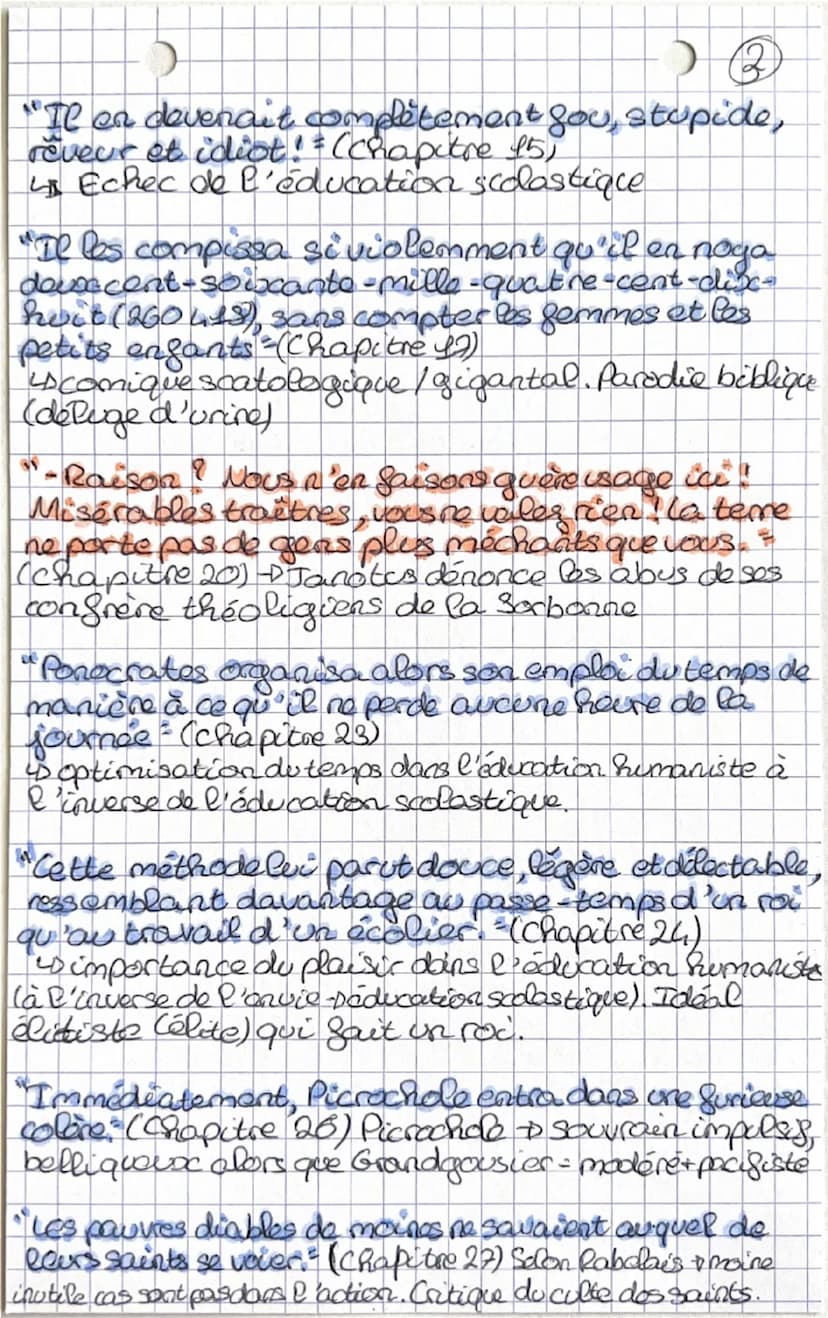 2
"Il en devenait complètement fou, stupide,
rêveur et idiot!" (Chapitre 15)
↳ Echec de l'éducation scolastique
"Il les compissa si violemment qu'il en noya
deux cent-soixante-mille-quatre-cent-dix-
huit (260 418), sans compter les femmes et les
petits enfants" (Chapitre 17)
↳ comique scatologique / gigantal. Parodie biblique
(déluge d'urine)
"- Raison? Nous n'en faisons guère usage ici!
Misérables traîtres, vous ne valez rien! la terre
ne porte pas de gens plus méchants que vous."
(Chapitre 20) → Janotus dénonce les abus de ses
confrère théoligiens de la Sorbonne
"Ponocrates organisa alors son emploi du temps de
manière à ce qu'il ne perde aucune heure de la
journée" (Chapitre 23)
↳ optimisation du temps dans l'éducation humaniste à
l'inverse de l'éducation scolastique.
"Cette méthode lui parut douce, légère et délectable,
ressemblant davantage au passe-temps d'un roi
qu'au travail d'un écolier." (Chapitre 24)
↳ importance du plaisir dans l'éducation humaniste
(à l'inverse de l'envie → éducation scolastique). Idéal
élitiste (élite) qui fait un roi.
"Immédiatement, Picrochole entra dans une furieuse
colère." (Chapitre 26) Picrochole → souvrain impulsif,
belliqueux alors que Grandgousier = modéré + pacifiste
"Les pauvres diables de moines ne savaient auquel de
leurs saints se voier." (Chapitre 27) Selon Rabelais → moine
inutile cas sont pas dans l'action. Critique du culte des saints.